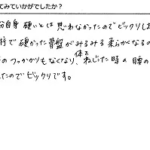 てみていかがでしたか？
分自身 硬いとは 思わなかったのでビックリしま
で硬かった骨盤がみるみる柔らかくなるの
のつっかかりもなくなり、体をねじった時の腰の
たのでビックリです。